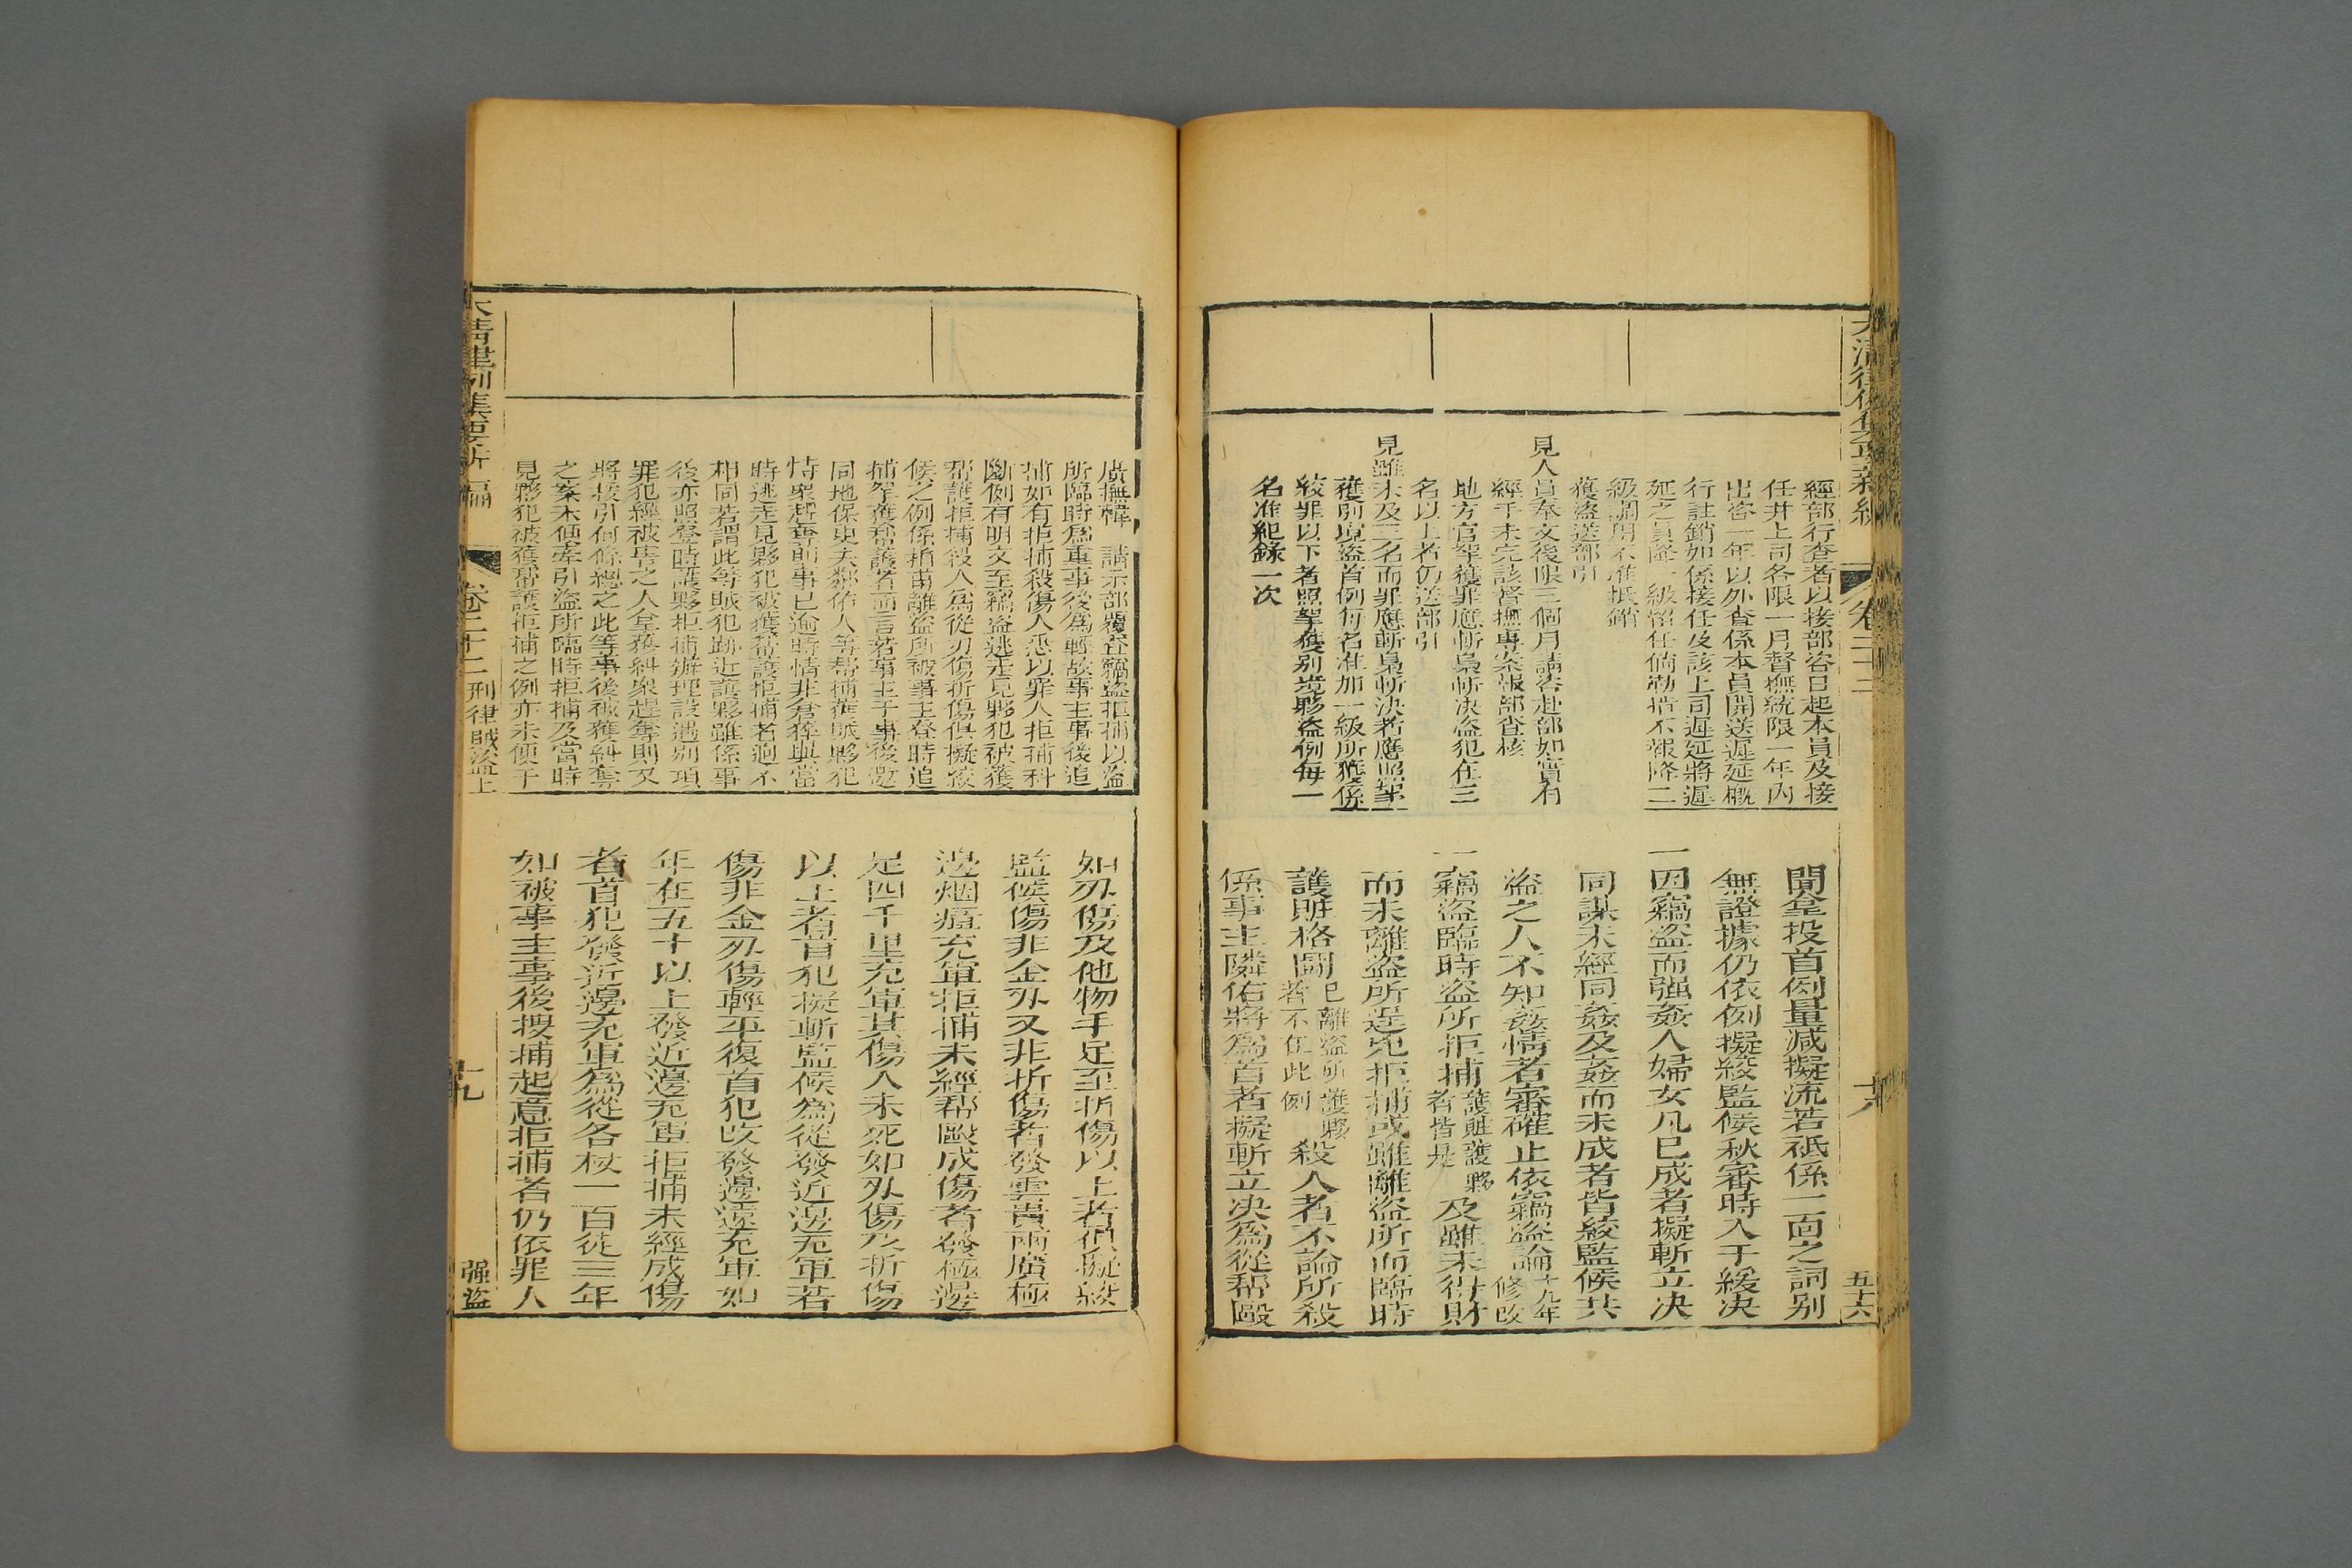 大清律例集要新編
卷二十二
十八
五十六
經部行查者以接部咨日起本員及接
任井上司各限一月督撫統限一年內
出咨一年以外查係本員開送遲延概
行註銷如係接任及該上司遲延將遲
延之員降一級留任倘勒措不報降二
級調用不准抵銷
獲盜送部引
見人員奉文後限三個月請咨赴部如實有
經手未完該督撫專案報部查核
地方官拏獲罪應斬梟斬决盜犯在三
名以上者仍送部引
見雖未及三名而罪應斬梟斬决者應照拏
獲別境盜首例每名准加一級所獲係
絞罪以下者照拏獲别境夥盜例每一
名准紀錄一次
聞拿投首例量減擬流若祗係一面之詞别
無證據仍依例擬絞監候秋審時入于緩决
一因竊盜而强姦人婦女凡已成者擬斬立决
同謀未經同姦及姦而未成者皆絞監候共
盜之人不知姦情者審確止依竊盜論十九年修改
一竊盜臨時盜所拒捕護賍護夥者皆是及雖未得財
而未離盜所逞兇拒捕或雖離盜所而臨時
護賍格鬪已離盜所護夥者不在此例殺人者不論所殺
係事主隣佑將爲首者擬斬立决爲從幫毆
廣撫韓 請示部覆查竊盜拒捕以盜
所臨時爲重事後爲輕故事主事後追
捕如有拒捕殺傷人悉以罪人拒捕科
斷例有明文至竊盜逃走見夥犯被獲
幫護拒捕殺人爲從刃傷折傷俱擬絞
候之例係指甫離盜所被事主登時追
捕拏獲幫護者而言若事主于事後邀
同地保更夫鄰佑人等幫捕獲賊夥犯
恃衆趕奪則事已逾時情非倉猝與當
時逃走見夥犯被獲幫護拒捕者迥不
相同若謂此等賊犯跡近護夥雖係事
後亦照登時護夥拒捕辦理設遇别項
罪犯經被害之人拿獲糾衆趕奪則又
將援引何條總之此等事後被獲糾奪
之案未便牽引盜所臨時拒捕及當時
見夥犯被獲幫護拒捕之例亦未便于
如刃傷及他物手足至折傷以上者俱擬絞
監候傷非金刃又非折傷者發雲貴兩廣極
邊烟瘴充軍拒捕未經幫毆成傷者發極邊
足四千里充軍其傷人未死如刃傷及折傷
以上者首犯擬斬監候爲從發近邊充軍若
傷非金刃傷輕平復首犯改發邊遠充軍如
年在五十以上發近邊充軍拒捕未經成傷
者首犯發近邊充軍爲從各杖一百徒三年
如被事主事後搜捕起意拒捕者仍依罪人
大清律例集要新編
卷二十二 刑律賊盜上
十九
强盜